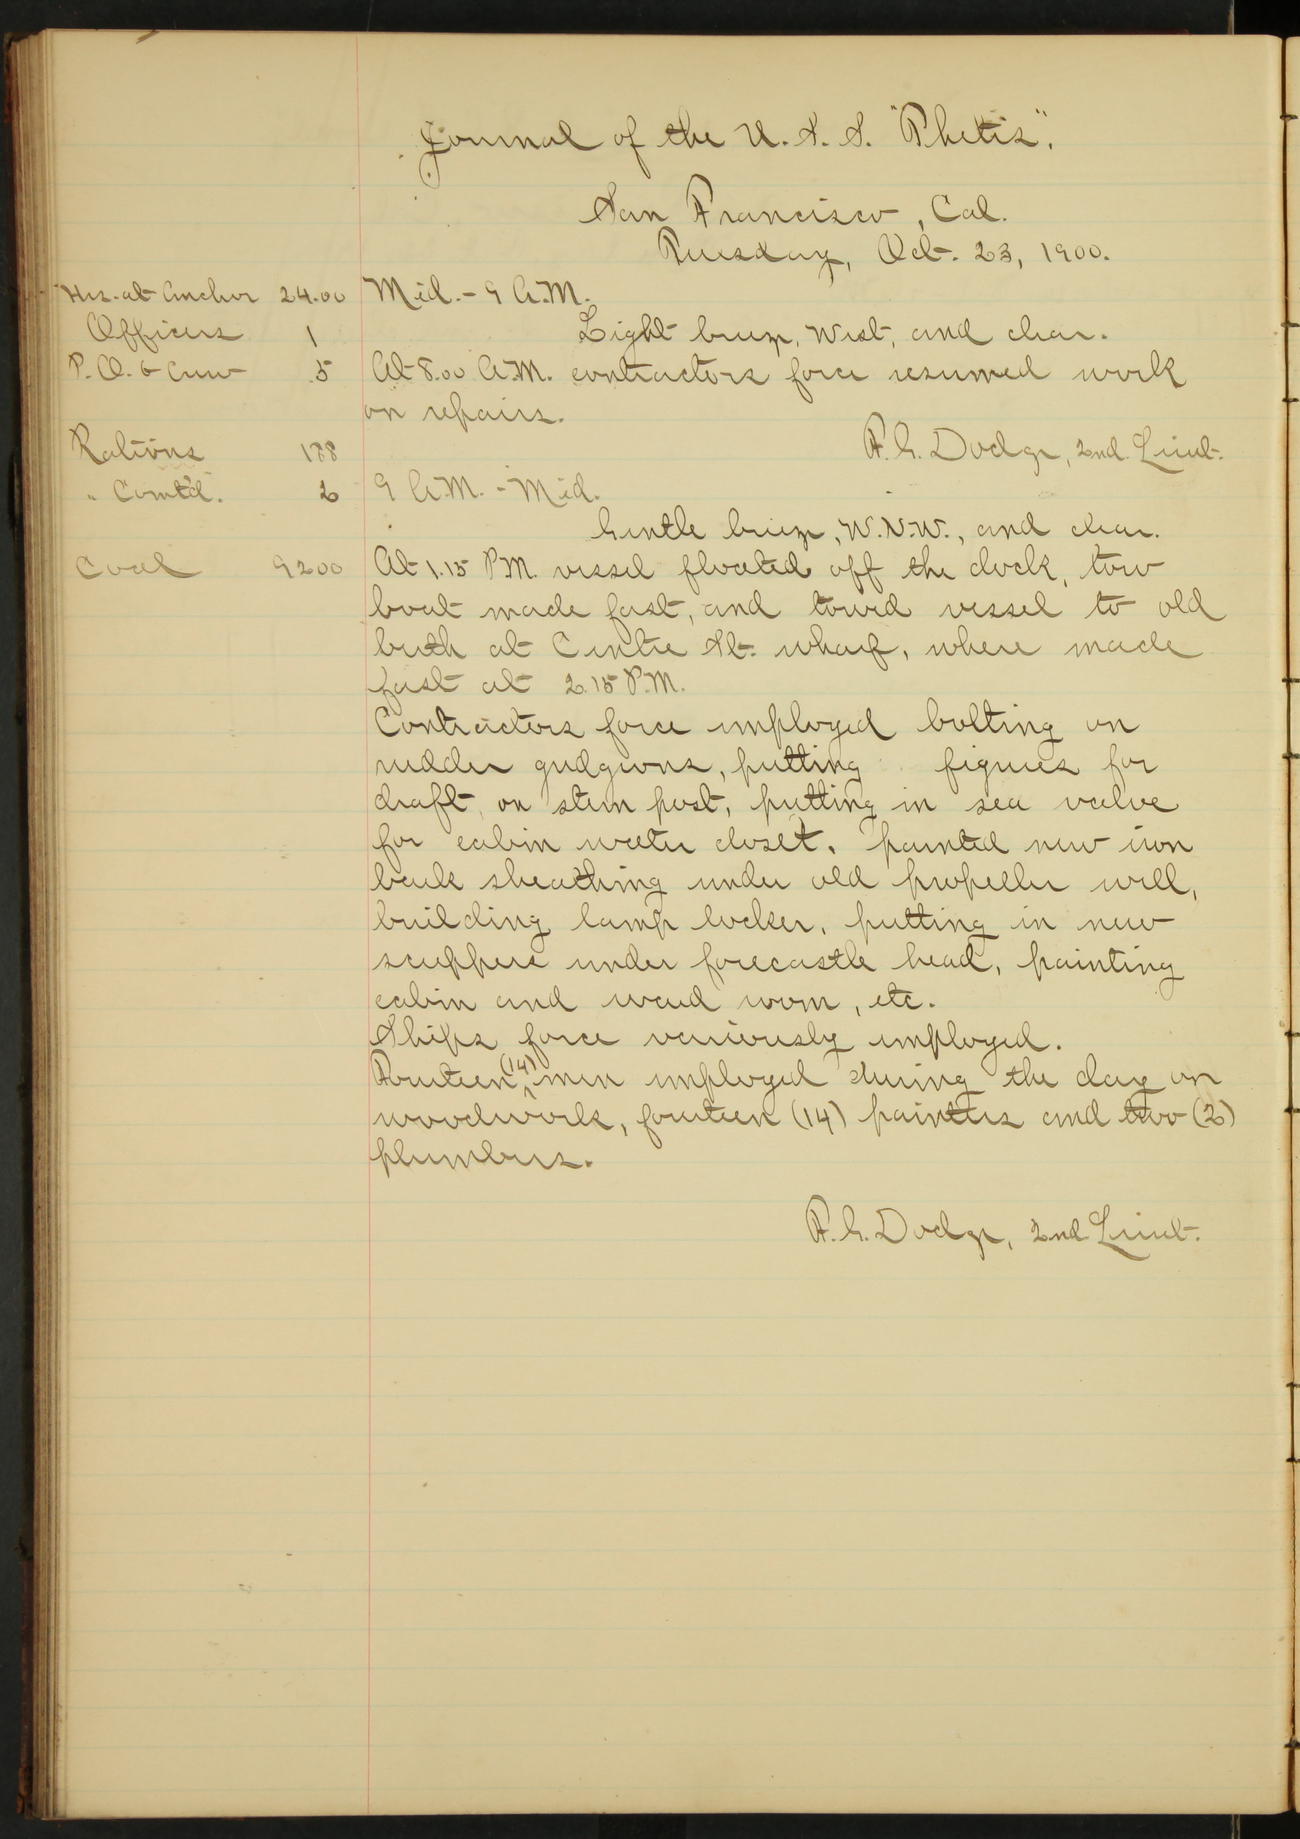 Journal of the U. S. S. "Thetis".
San Francisco, Cal.
Tuesday, Oct. 23, 1900.
Hrs. at Anchor 24.00 Mid. - 9 A.M.
Officers 1 Light breeze, West, and clear.
P.O. & Crew 5 At 8.00 A.M. contractors force resumed work
on repairs.
Rations 188 F. G. Dodge, 2nd. Lieut.
" Comt'd. 2 9 A.M. - Mid.
Gentle breeze, W.N.W., and clear.
Coal 9200 At 1.15 P.M. vessel floated off the dock, tow
boat made fast, and towed vessel to old
berth at Centre St. wharf, where made
fast at 2.15 P.M.
Contractors force employed bolting on
rudder gudgeons, putting figures for
draft, on stern post, putting in sea valve
for cabin water closet, painted new iron
bark sheathing under old propeller well,
building lamp locker, putting in new
scuppers under forecastle head, painting
cabin and ward room, etc.
Ships force variously employed.
Fourteen (14) men employed during the day on
woodwork, fourteen (14) painters and two (2)
plumbers.
F. G. Dodge, 2nd Lieut.